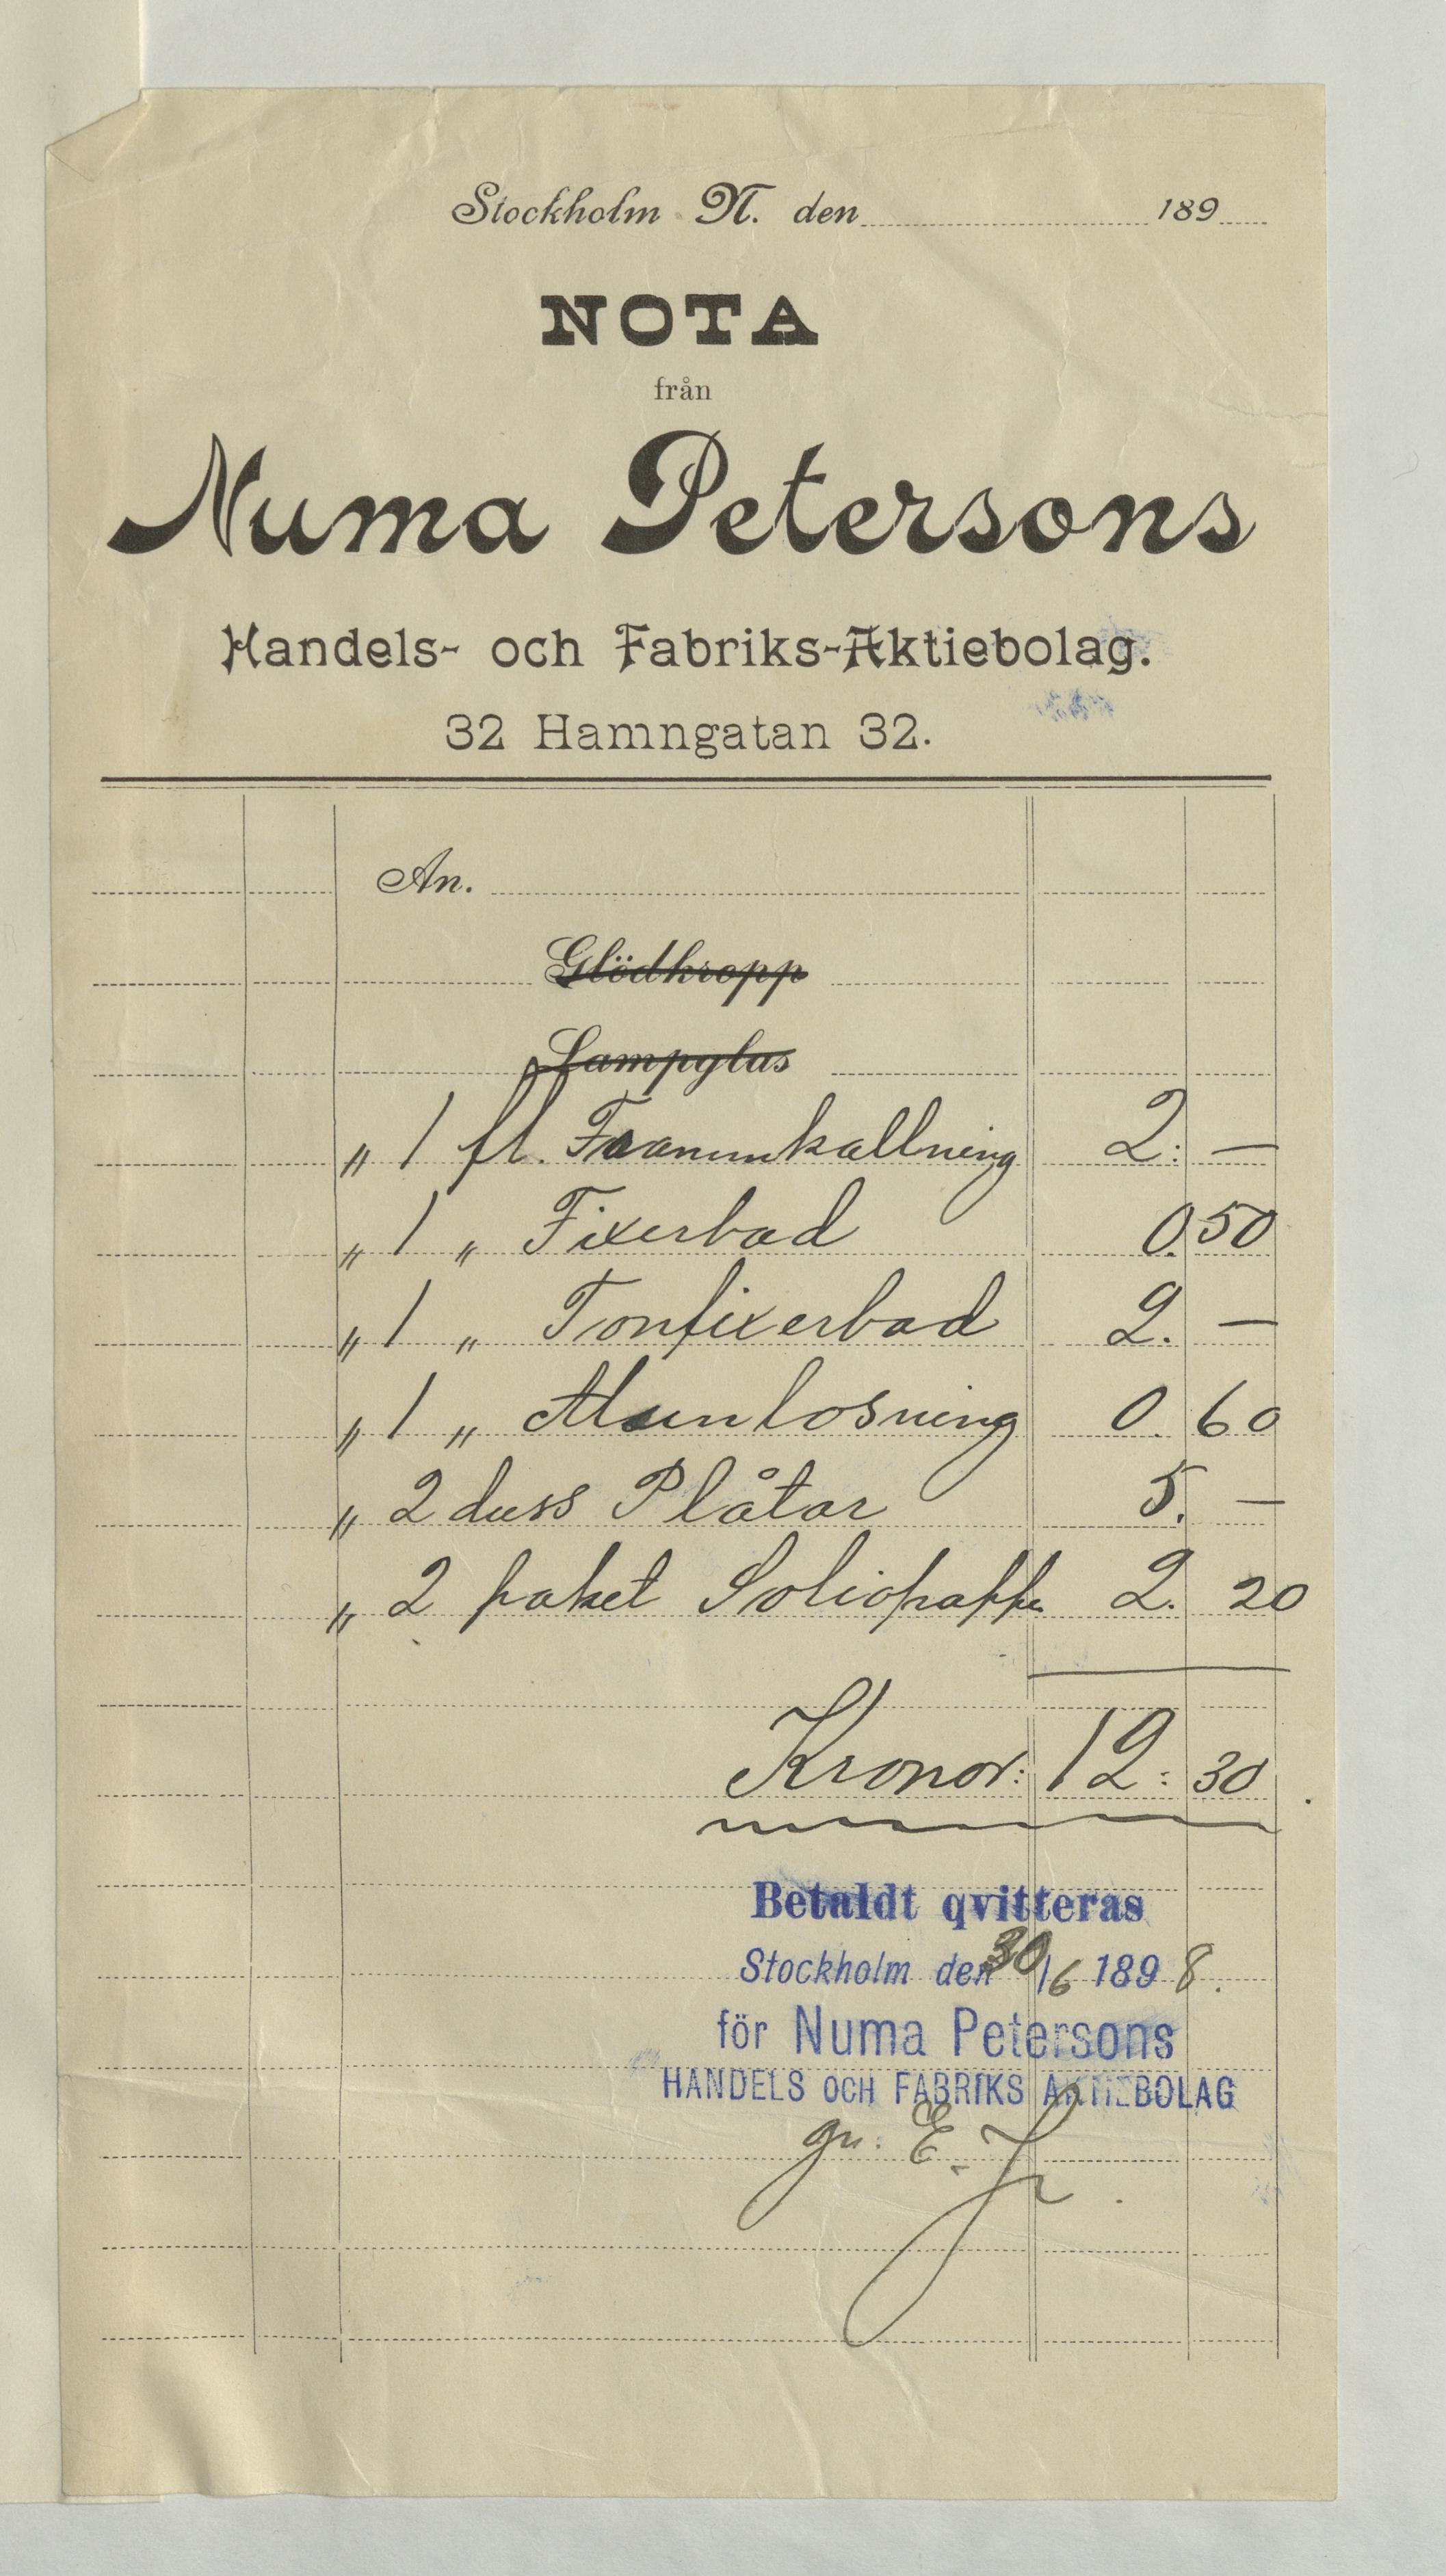 Stockholm N. den 189
NOTA
från
Numa Petersons
Handels- och Fabriks-Aktiebolag.
32 Hamngatan 32.
An.
Glödkropp
Lampglas
" 1 fl. Frammkallning 2: —
" 1 " Fixerbad 0.50
" 1 " Tonfixerbad 2. —
" 1 " Alunlosning 0.60
" 2 duss Plåtar 5. —
" 2 paket Soliopapp 2. 20
Kronor: 12: 30
Betaldt qvitteras
Stockholm den 30/6 1898.
för Numa Petersons
HANDELS OCH FABRIKS AKTIEBOLAG
gm: E.